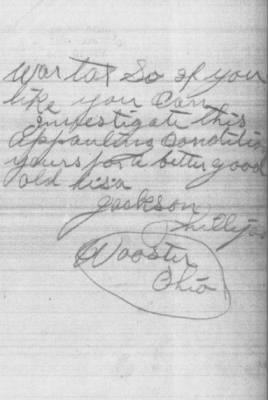 war tax So if you
like you Can
investigate this
appaulting Conditio
yours for a better good
old u.s.a
Jackson
Phillips
Wooster
Ohio